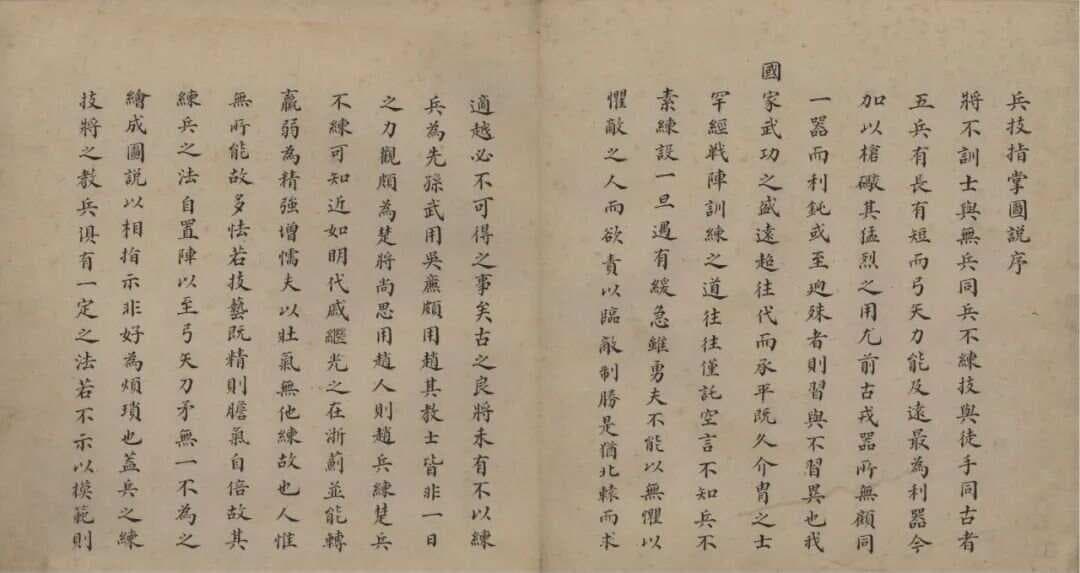 兵技指掌圖說序
將不訓士與無兵同兵不練技與徒手同古者
五兵有長有短而弓矢力能及遠最為利器今
加以槍礮其猛烈之用尤前古戎器所無顧同
一器而利鈍或至逈殊者則習與不習異也我
國家武功之盛遠超往代而承平既久介胄之士
罕經戰陣訓練之道往往僅託空言不知兵不
素練設一旦遇有緩急雖勇夫不能以無懼以
懼敵之人而欲責以臨敵制勝是猶北轅而求
適越必不可得之事矣古之良將未有不以練
兵為先孫武用吳廉頗用趙其教士皆非一日
之力觀頗為楚將尚思用趙人則趙兵練楚兵
不練可知近如明代戚繼光之在浙薊並能轉
羸弱為精強增懦夫以壯氣無他練故也人惟
無所能故多怯若技藝既精則膽氣自倍故其
練兵之法自置陣以至弓矢刀矛無一不為之
繪成圖說以相指示非好為煩瑣也蓋兵之練
技將之教兵俱有一定之法若不示以模範則